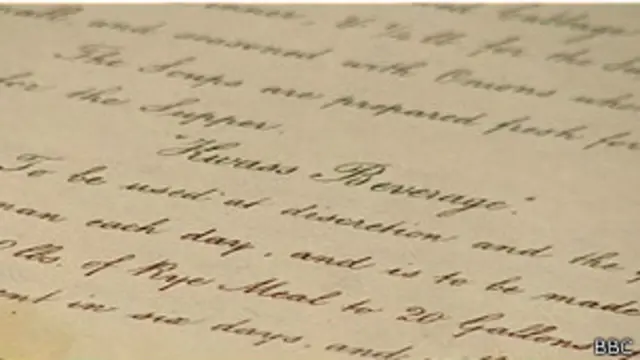 dinner, & ½ lb. for the
and seasoned with Onions
The Soups are prepared fresh for
for the Supper.
"Kwass Beverage."
To be used at discretion and the
man each day, and is to be made
lbs. of Rye Meal to 20 Gallons
in six days, and
BBC